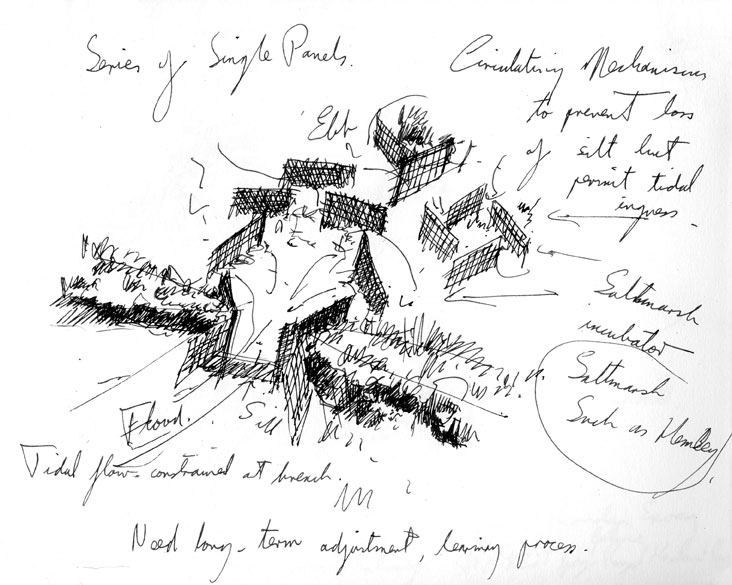 Series of Single Panels.
Circulating Mechanisms
to prevent loss
of silt but
permit tidal
ingress.
Ebb
Saltmarsh
incubator
Saltmarsh
Such as Hemley
Flood.
Sill
Tidal flow constrained at breach.
Need long-term adjustment, learning process.